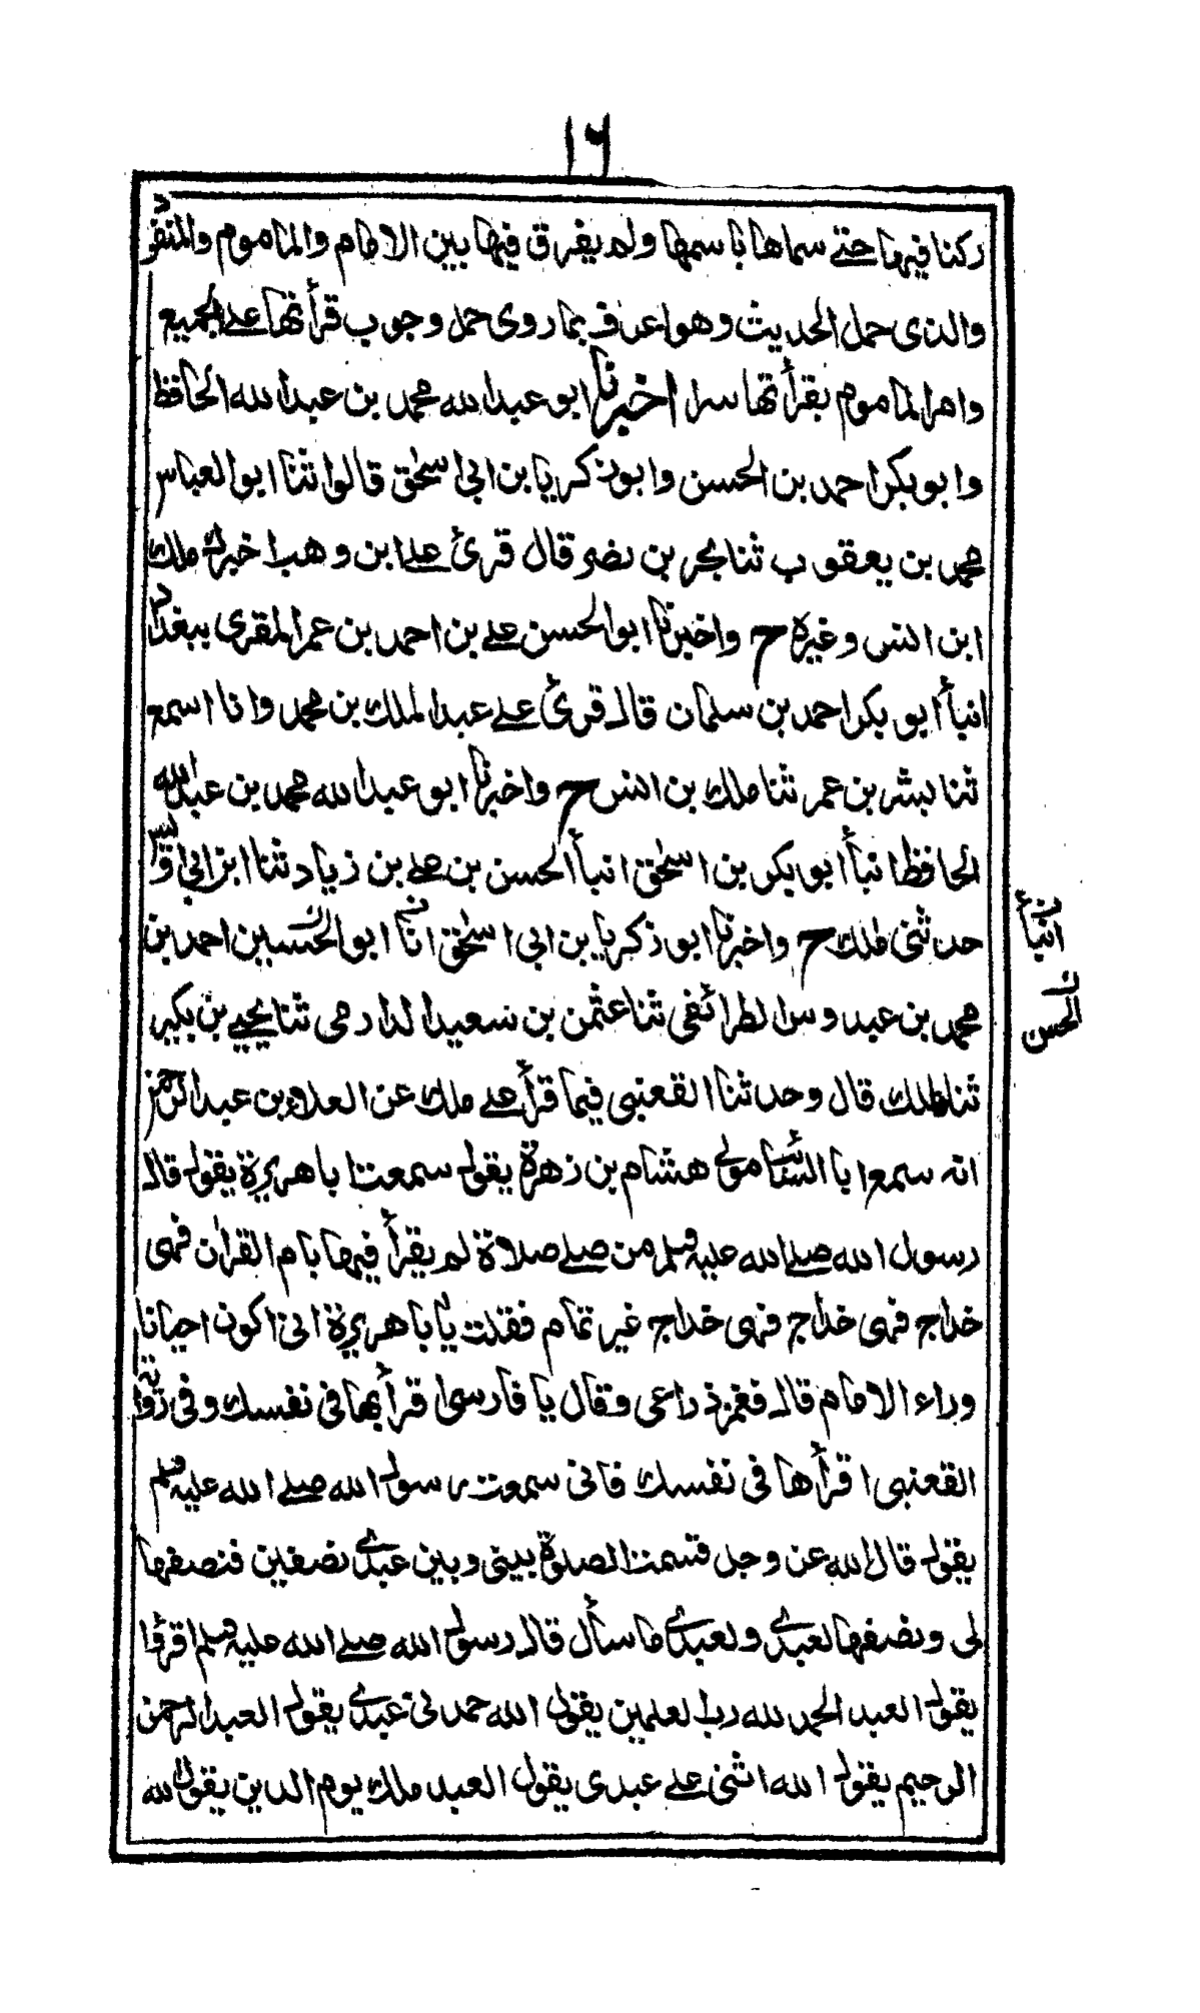 ١٦
ركنا فيها حتے سماها باسمها ولم يفرق فيها بين الامام والماموم والمنفرد
والذى حمل الحديث وهو اعرف بما روى حمل وجوب قرأتها علے الجميع
وامر الماموم بقرأتها سرا اخبرنا ابو عبد الله محمد بن عبد الله الحافظ
وابو بكر احمد بن الحسن وابو زكريا بن ابى اسحٰق قالوا ثنا ابو العباس
محمد بن يعقوب ثنا بحر بن نصر قال قرئ علے ابن وهب اخبرك ملك
ابن انس وغيره ح واخبرنا ابو الحسن علے بن احمد بن عمر المقرى ببغداد
انبأ ابو بكر احمد بن سلمان قال قرئ علے عبد الملك بن محمد وانا اسمع
ثنا بشر بن عمر ثنا ملك بن انس ح واخبرنا ابو عبد الله محمد بن عبد الله
الحافظ انبأ ابو بكر بن اسحٰق انبأ الحسن بن علے بن زياد ثنا ابن ابى اويس
حدثنى ملك ح واخبرنا ابو زكريا بن ابى اسحٰق انا ابو الحسين احمد بن
انبأ
الحسن
محمد بن عبدوس الطرائفى ثنا عثمٰن بن سعيد الدارمى ثنا يحيے بن بكير
ثنا ملك قال وحدثنا القعنبى فيما قرأ علے ملك عن العلاء بن عبد الرحمٰن
انه سمع ابا السائب مولى هشام بن زهرة يقول سمعت ابا هريرة يقول قال
رسول الله صلے الله عليه وسلم من صلے صلاة لم يقرأ فيها بام القراٰن فهى
خداج فهى خداج فهى خداج غير تمام فقلت يا ابا هريرة انى اكون احيانا
وراء الامام قال فغمز ذراعى وقال يا فارسى اقرأ بها فى نفسك وفى رواية
القعنبى اقرأها فى نفسك فانى سمعت رسول الله صلے الله عليه وسلم
يقول قال الله عز وجل قسمت الصلوٰة بينى وبين عبدى نصفين فنصفها
لى ونصفها لعبدى ولعبدى ما سأل قال رسول الله صلے الله عليه وسلم اقرؤا
يقول العبد الحمد لله رب العلمين يقول الله حمدنى عبدى يقول العبد الرحمن
الرحيم يقول الله اثنى علے عبدى يقول العبد ملك يوم الدين يقول الله